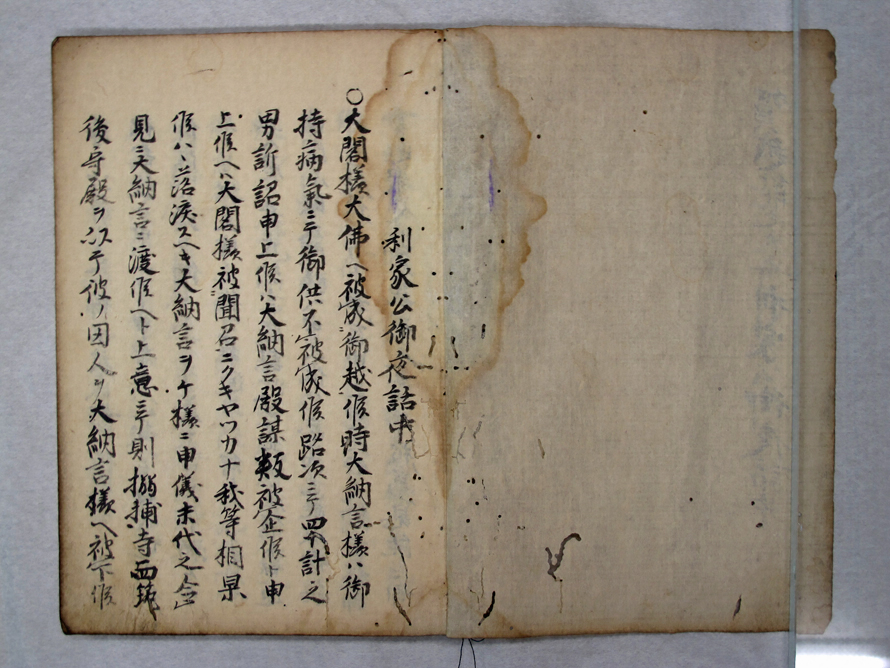 利家公御夜話中
○大閤様大佛ヘ被成御越候時大納言様ハ御
持病氣ニテ御供不被成候路次ニテ四十計之
男訴詔申上候ハ大納言殿謀叛被企候ト申
上候ヘハ大閤様被聞召ニクキヤツカナ我等相果
候ハヽ落涙スヘキ大納言ヲケ様ニ申儀末代之
見ニ大納言ニ渡候ヘト上意ニテ則搦捕寺西筑
後守殿ヲ以テ彼ノ囚人ヲ大納言様ヘ被下候